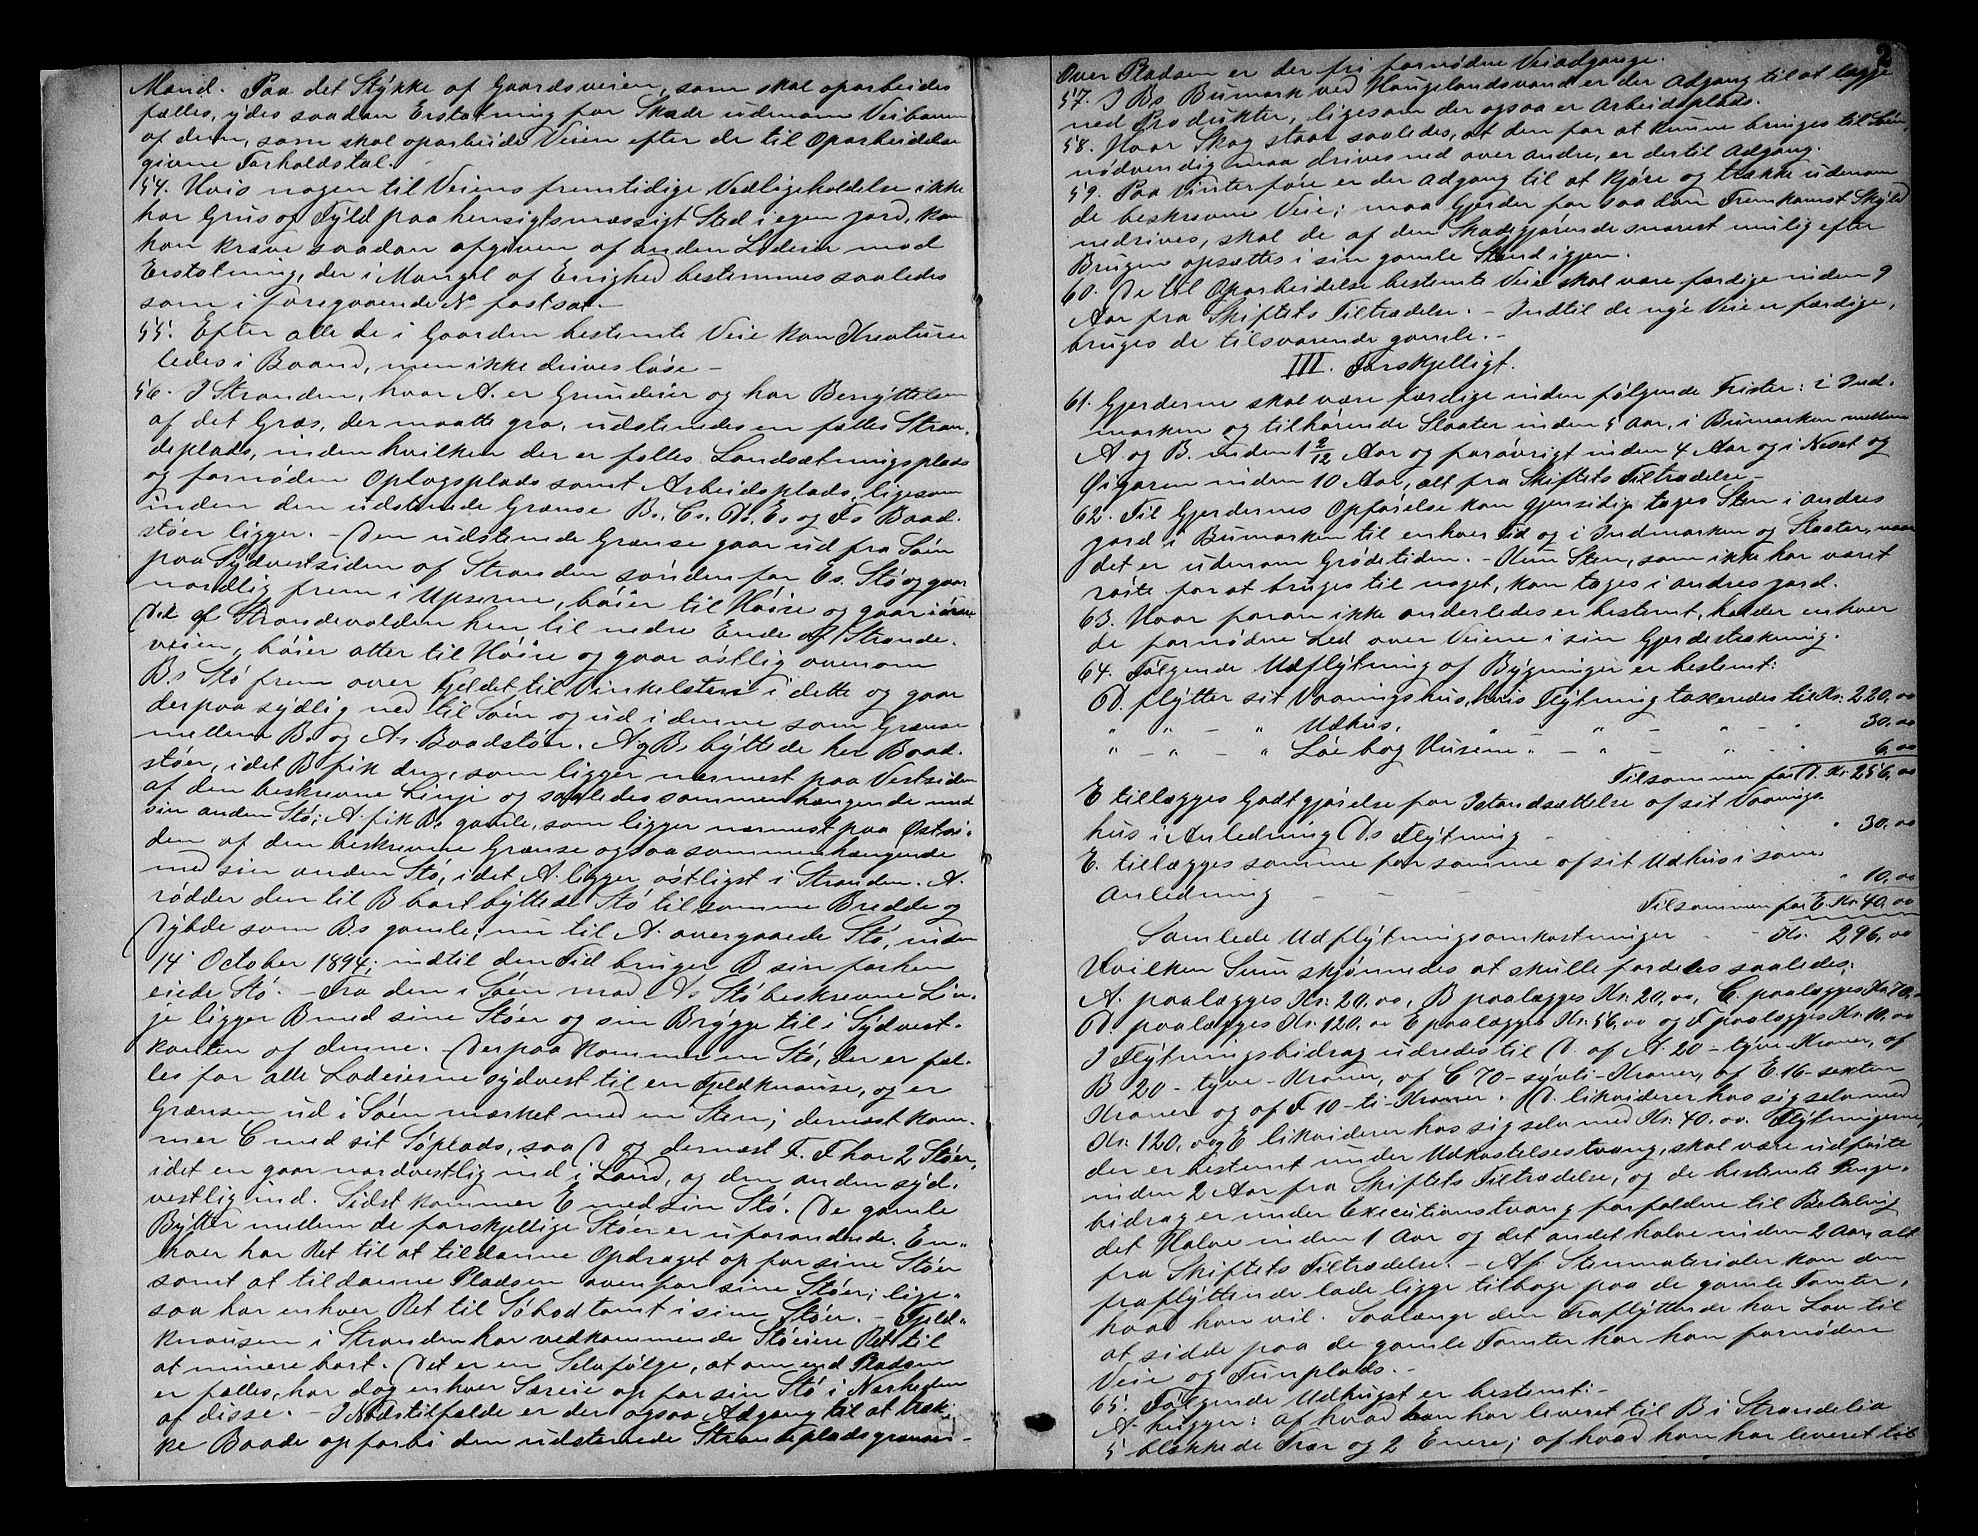 Mand. Paa det Stykke af Gaardsveien, som skal oparbeides
fælles, ydes saadan Erstatning for Skade udenom Veibanen
af dem, som skal oparbeide Veien efter de til Oparbeidelse
givne Forholdstal. -
54. Hvis nogen til Veiens fremtidige Vedligeholdelse ikke
har Grus og Fyld paa hensigtsmæssigt Sted i egen Jord, kan
han kræve saadan afgiven af anden Lodeier mod
Erstatning, der i Mangel af Enighed bestemmes saaledes
som i foregaaende No fastsat. -
55. Efter alle de i Gaarden bestemte Veie kan Kreaturer
ledes i Baand, men ikke drives løse -
56. I Stranden, hvor A. er Grundeier og har Benyttelsen
af det Græs, der maatte gro, udstenedes en fælles Stran-
deplads, inden hvilken der er fælles Landsætningsplads
og fornøden Oplagsplads samt Arbeidsplads, ligesom
inden den udstenede Grænse B.s, C.s, D.s, E.s og F.s Baad-
støer ligger. - Den udstenede Grænse gaar ud fra Søen
paa Sydvestsiden af Stranden søndenfor E.s Stø og gaar
nordlig frem i Upserne, bøier til Høire og gaar i øvre
Del af Strandevolden hen til nedre Ende af Strande-
veien, bøier atter til Høire og gaar østlig ovenom
B.s Stø frem over Fjeldet til Vinkelsten i dette og gaar
derpaa sydlig ned til Søen og ud i denne som Grænse
mellem B.s og A.s Baadstøer. A og B byttede her Baad-
støer, idet B fik den, som ligger nærmest paa Vestsiden
af den beskrevne Linje og saaledes sammenhængende med
sin anden Stø; A. fik B.s gamle, som ligger nærmest paa Østsi-
den af den beskrevne Grænse ogsaa sammenhængende
med sin anden Stø, idet A. ligger østligst i Stranden. A.
rødder den til B bortbyttede Stø til samme Bredde og
Dybde som B.s gamle, nu til A. overgaaede Stø, inden
14 October 1894; indtil den Tid bruger B sin forhen
eiede Stø. - Fra den i Søen mod A.s Stø beskrevne Lin-
je ligger B med sine Støer og sin Brygge til i Sydvest-
kanten af denne. Derpaa kommer en Stø, der er fæl-
les for alle Lodeierne sydvest til en Fjeldknause, og er
Grænsen ud i Søen mærket med en Sten; dernæst kom-
mer C med sit Søplads, saa D og dernæst F. F har 2 Støer,
idet en gaar nordvestlig ind i Land, og den anden syd-
vestlig ind. Sidst kommer E med sin Stø. De gamle
Bytter mellem de forskjellige Støer er uforandrede. En-
hver har Ret til at tildanne Opdraget op for sine Støer
samt at tildanne Pladsen ovenfor sine Støer; lige-
saa har enhver Ret til Søbodtomt i sine Støer. - Fjeld-
knausen i Stranden har vedkommende Støeiere Ret til
at minere bort. Det er en Selvfølge, at om end Pladsen
er fælles, har dog enhver Særeie op for sin Stø i Nærheden
af disse. - I Nødstilfælde er der ogsaa Adgang til at træk-
ke Baade op forbi den udstenede Strandepladsgrænse -
2
Over Pladsen er der fri fornødne Veiadgange.
57. I B.s Bumark ved Haugelandsvand er der Adgang til at lægge
ned Produkter, ligesom der ogsaa er Arbeidsplads.
58. Hvor Skog staar saaledes, at den for at kunne bringes til Søen,
nødvendig maa drives ned over andre, er dertil Adgang.
59. Paa Vinterføre er der Adgang til at kjøre og trække udenom
de beskrevne Veie; maa Gjerder for saadan Fremkomst Skyld
nedrives, skal de af den Skadegjørende snarest mulig efter
Brugen opsættes i sin gamle Stand igjen.
60. De til Oparbeidelse bestemte Veie skal være færdige inden 9
Aar fra Skiftets Tiltrædelse. - Indtil de nye Veie er færdige,
bruges de tilsvarende gamle. -
III. Forskjelligt.
61. Gjerderne skal være færdige inden følgende Frister: i Ind-
marken og tilhørende Slaater inden 5 Aar, i Bumarken mellem
A og B. inden 1 2/12 Aar og forøvrigt inden 4 Aar og i Neset og
Øigaren inden 10 Aar, alt fra Skiftets Tiltrædelse -
62. Til Gjerdernes Opførelse kan gjensidig tages Sten i andres
jord i Bumarken til enhver tid og i Indmarken og Slaater, naar
det er udenom Grødetiden. - Kun Sten, som ikke har været
røite for at bruges til noget, kan tages i andres jord.
63. Hvor foran ikke anderledes er bestemt, holder enhver
de fornødne Led over Veiene i sin Gjerdestrækning.
64. Følgende Udflytning af Bygninger er bestemt:
D. flytter sit Vaaningshus, hvis Flytning taxeredes til Kr. 220,00
" " - " Udhus, " " - " - " 30,00
" - " - " Løe bog Husene " - " - " - " 6,00
Tilsammen for D. Kr. 256,00
E tillægges Godtgjørelse for Istandsættelse af sit Vaanings-
hus i Anledning D.s Flytning " 30,00
E. tillægges samme for samme af sit Udhus i sam.
Anledning - - - - " 10,00
Tilsammen for E. Kr. 40,00
Samlede Udflytningsomkostninger - - Kr. 296,00
Hvilken Sum skjønnedes at skulle fordeles saaledes:
A. paalægges Kr. 20,00, B paalægges Kr. 20,00, C. paalægges Kr. 70,-
D paalægges Kr. 120,00 E paalægges Kr. 56,00 og F paalægges Kr. 10,00
I Flytningsbidrag udredes til D. af A. 20 - tyve - Kroner, af
B 20 - tyve - Kroner, af C 70 - sytti - Kroner, af E. 16 - sexten
Kroner og af F 10 - ti - Kroner. D. likviderer hos sig selv med
Kr. 120,00 og E likviderer hos sig selv med Kr. 40,00. Flytningerne,
der er bestemt under Udkastelsestvang, skal være udførte
inden 2 Aar fra Skiftets Tiltrædelse, og de bestemte Penge-
bidrag er under Executionstvang forfaldne til Betaling
det Halve inden 1 Aar og det andet halve inden 2 Aar, alt
fra Skiftets Tiltrædelse. - Af Stenmaterialer kan den
fraflyttende lade ligge tilbage paa de gamle Tomter,
hvad han vil. Saalænge den Fraflyttende har Lov til
at sidde paa de gamle Tomter har han fornøden
Veie og Tunplads. -
65. Følgende Udhugst er bestemt: -
A. hugger: af hvad han har leveret til B i Strandelia
5 blekkede Trær og 2 Enere; af hvad han har leveret til